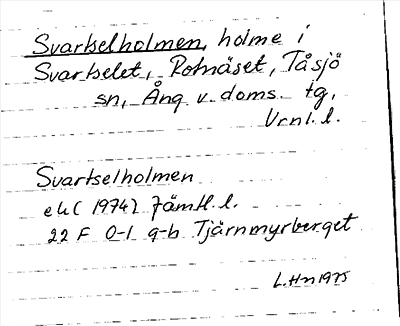 Svartselholmen, holme i
Svartselet, Rotnäset, Tåsjö
sn, Ång v. doms. tg,
Vrnl. l.
Svartselholmen
ek (1974) Jämtl. l.
22 F 0-1 g-h Tjärnmyrberget
L. Hn 1975